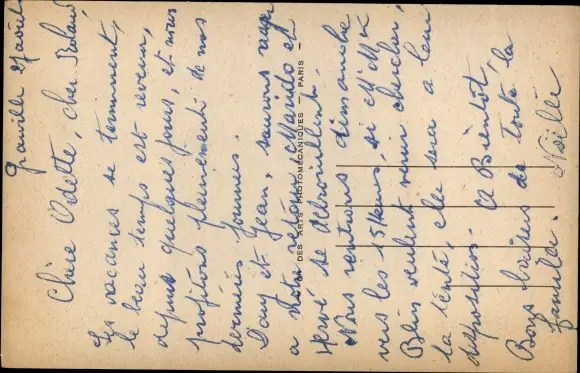 Granville 27 août
Chère Odette, cher Roland
Les vacances se terminent,
le beau temps est revenu,
depuis quelques jours, et nous
profitons pleinement de nos
dernières journées.
Dany et Jean, sauront nager
à notre retour,
Hervé se débrouillent.
Nous rentrons dimanche
vers les 15 heures, si
veulent venir chercher,
la tente, elle sera à leur
disposition. A Bientôt,
Bons baisers de toute la
famille. Noëlle
DES ARTS PHOTOMÉCANIQUES — PARIS —